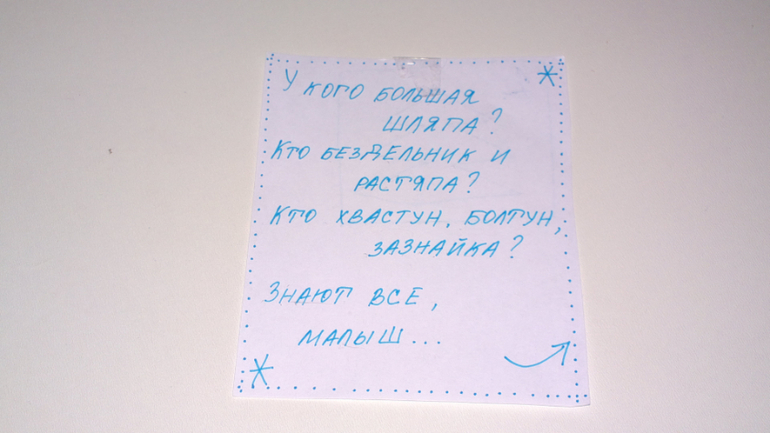 У КОГО БОЛЬШАЯ
ШЛЯПА?
КТО БЕЗДЕЛЬНИК И
РАСТЯПА?
КТО ХВАСТУН, БОЛТУН,
ЗАЗНАЙКА?
ЗНАЮТ ВСЕ,
МАЛЫШ...